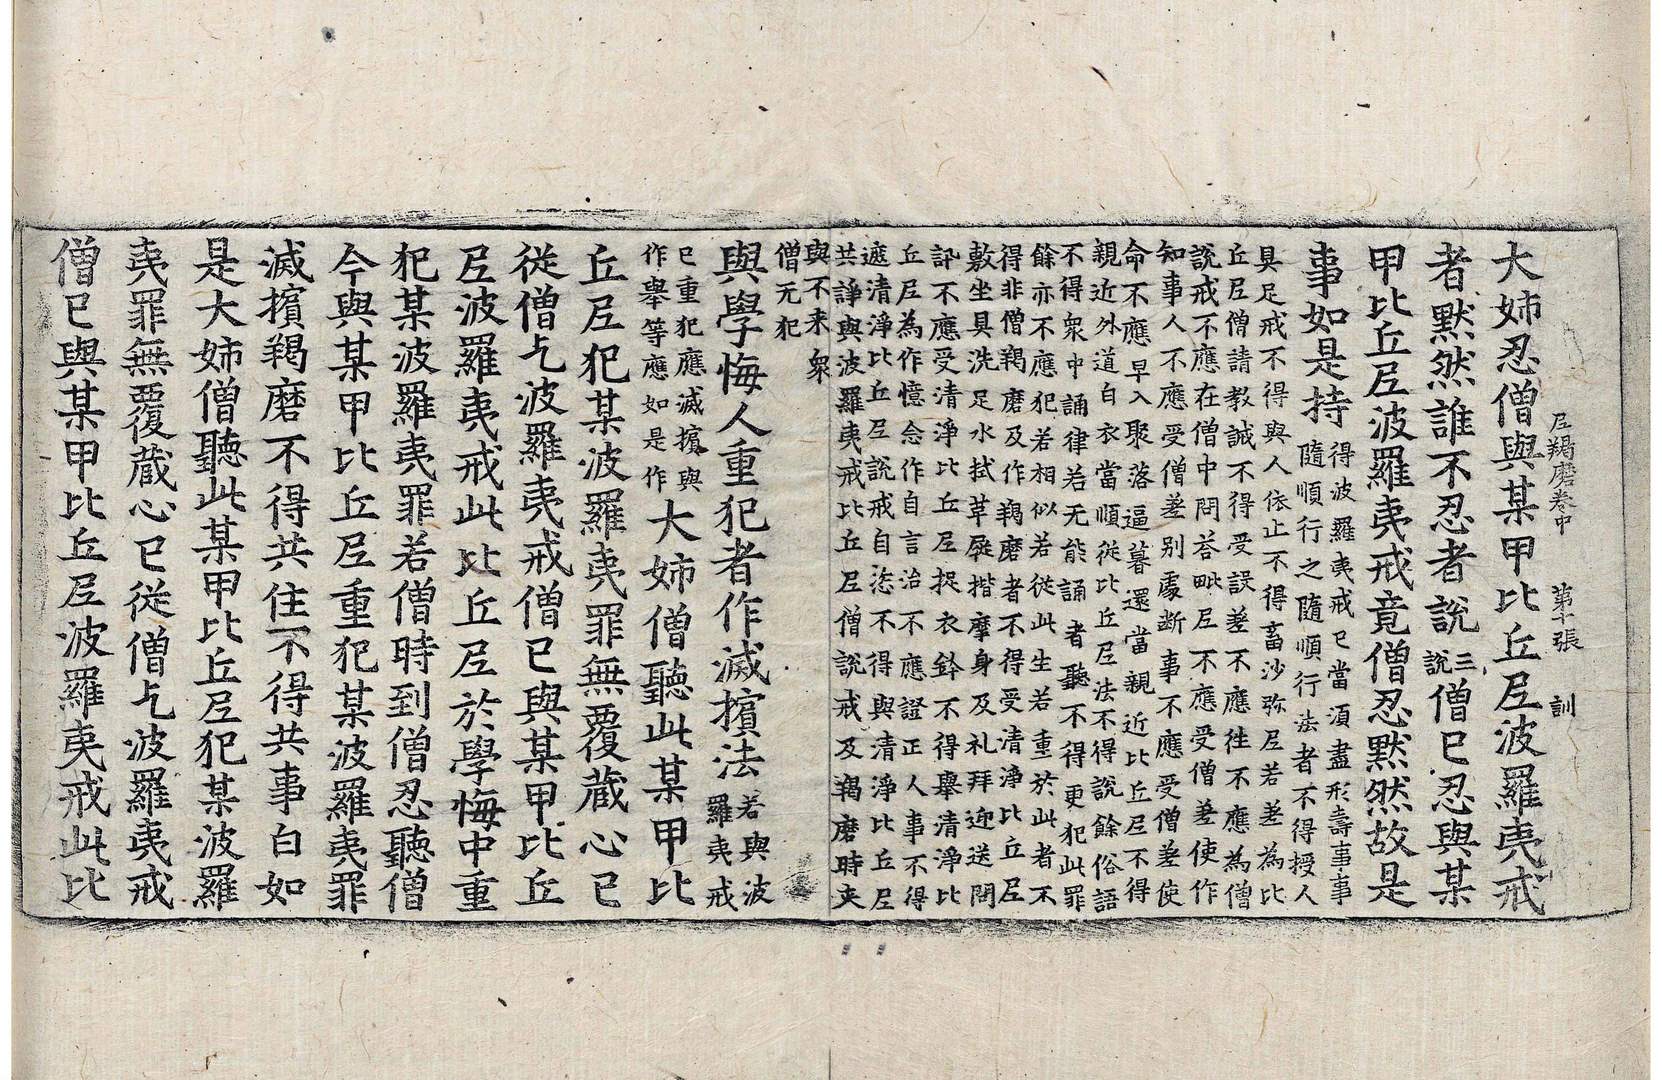 尼羯磨卷中 第十張 訓
大姉忍僧與某甲比丘尼波羅夷戒
者默然誰不忍者說三說僧已忍與某
甲比丘尼波羅夷戒竟僧忍默然故是
事如是持得波羅夷戒已當湏盡形壽事事
隨順行之隨順行法者不得授人
具足戒不得與人依止不得畜沙弥尼若差為比
丘尼僧請教誡不得受設差不應徃不應為僧
說戒不應在僧中問荅毗尼不應受僧差使作
知事人不應受僧差別處断事不應受僧差使
命不應早入聚落逼暮還當親近比丘尼不得
親近外道白衣當順從比丘尼法不得說餘俗語
不得衆中誦律若无能誦者聽不得更犯此罪
餘亦不應犯若相似若從此生若重於此者不
得非僧羯磨及作羯磨者不得受清淨比丘尼
敷坐具洗足水拭草屣揩摩身及礼拜迎送問
訊不應受清淨比丘尼捉衣鉢不得舉清淨比
丘尼為作憶念作自言治不應證正人事不得
遮清淨比丘尼說戒自恣不得與清淨比丘尼
共諍與波羅夷戒比丘尼僧說戒及羯磨時來
與不来衆
僧无犯
與學悔人重犯者作滅擯法若與波
羅夷戒
已重犯應滅擯與
作舉等應如是作大姉僧聽此某甲比
丘尼犯某波羅夷罪無覆蔵心已
從僧乞波羅夷戒僧已與某甲比丘
尼波羅夷戒此比丘尼於學悔中重
犯某波羅夷罪若僧時到僧忍聽僧
今與某甲比丘尼重犯某波羅夷罪
滅擯羯磨不得共住不得共事白如
是大姉僧聽此某甲比丘尼犯某波羅
夷罪無覆蔵心已從僧乞波羅夷戒
僧已與某甲比丘尼波羅夷戒此比